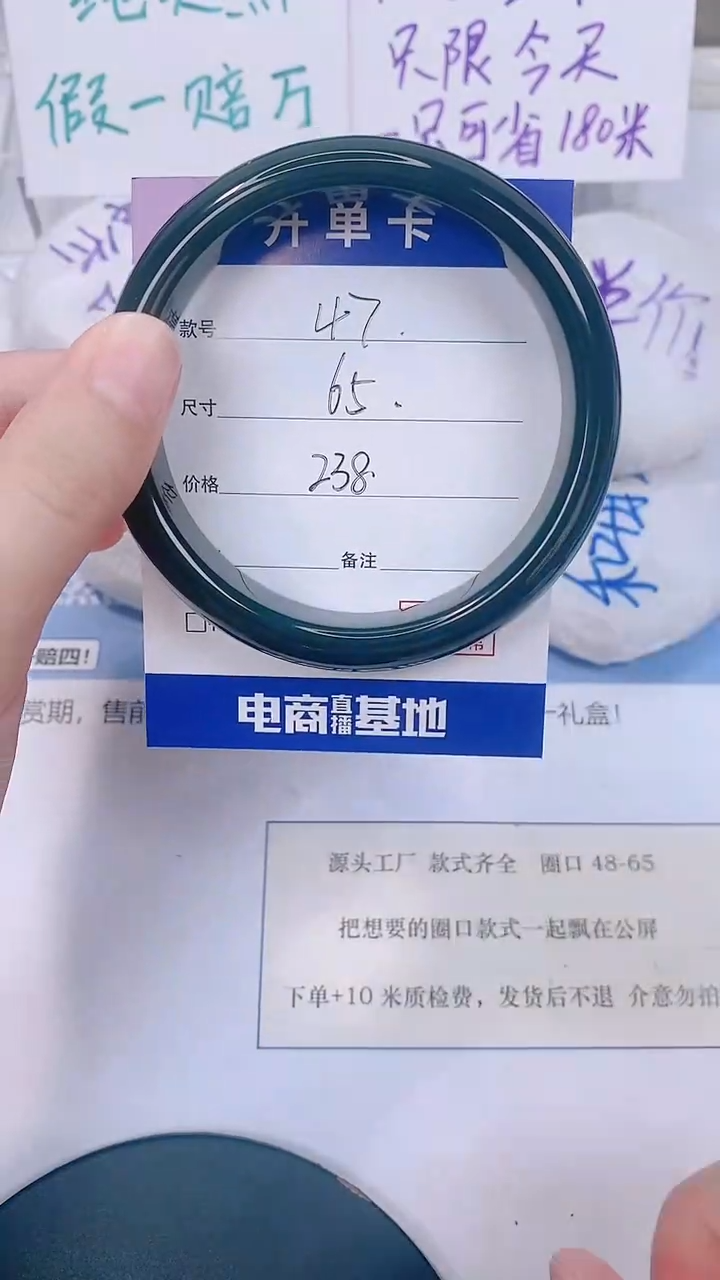 假一赔万
只限今天
一只可省180米
开单卡
款号 47.
尺寸 65.
价格 238.
备注
总价!
赔四!
赏期，售前
一礼盒!
电商直播基地
源头工厂 款式齐全 圈口 48-65
把想要的圈口款式一起飘在公屏
下单+10 米质检费，发货后不退 介意勿拍